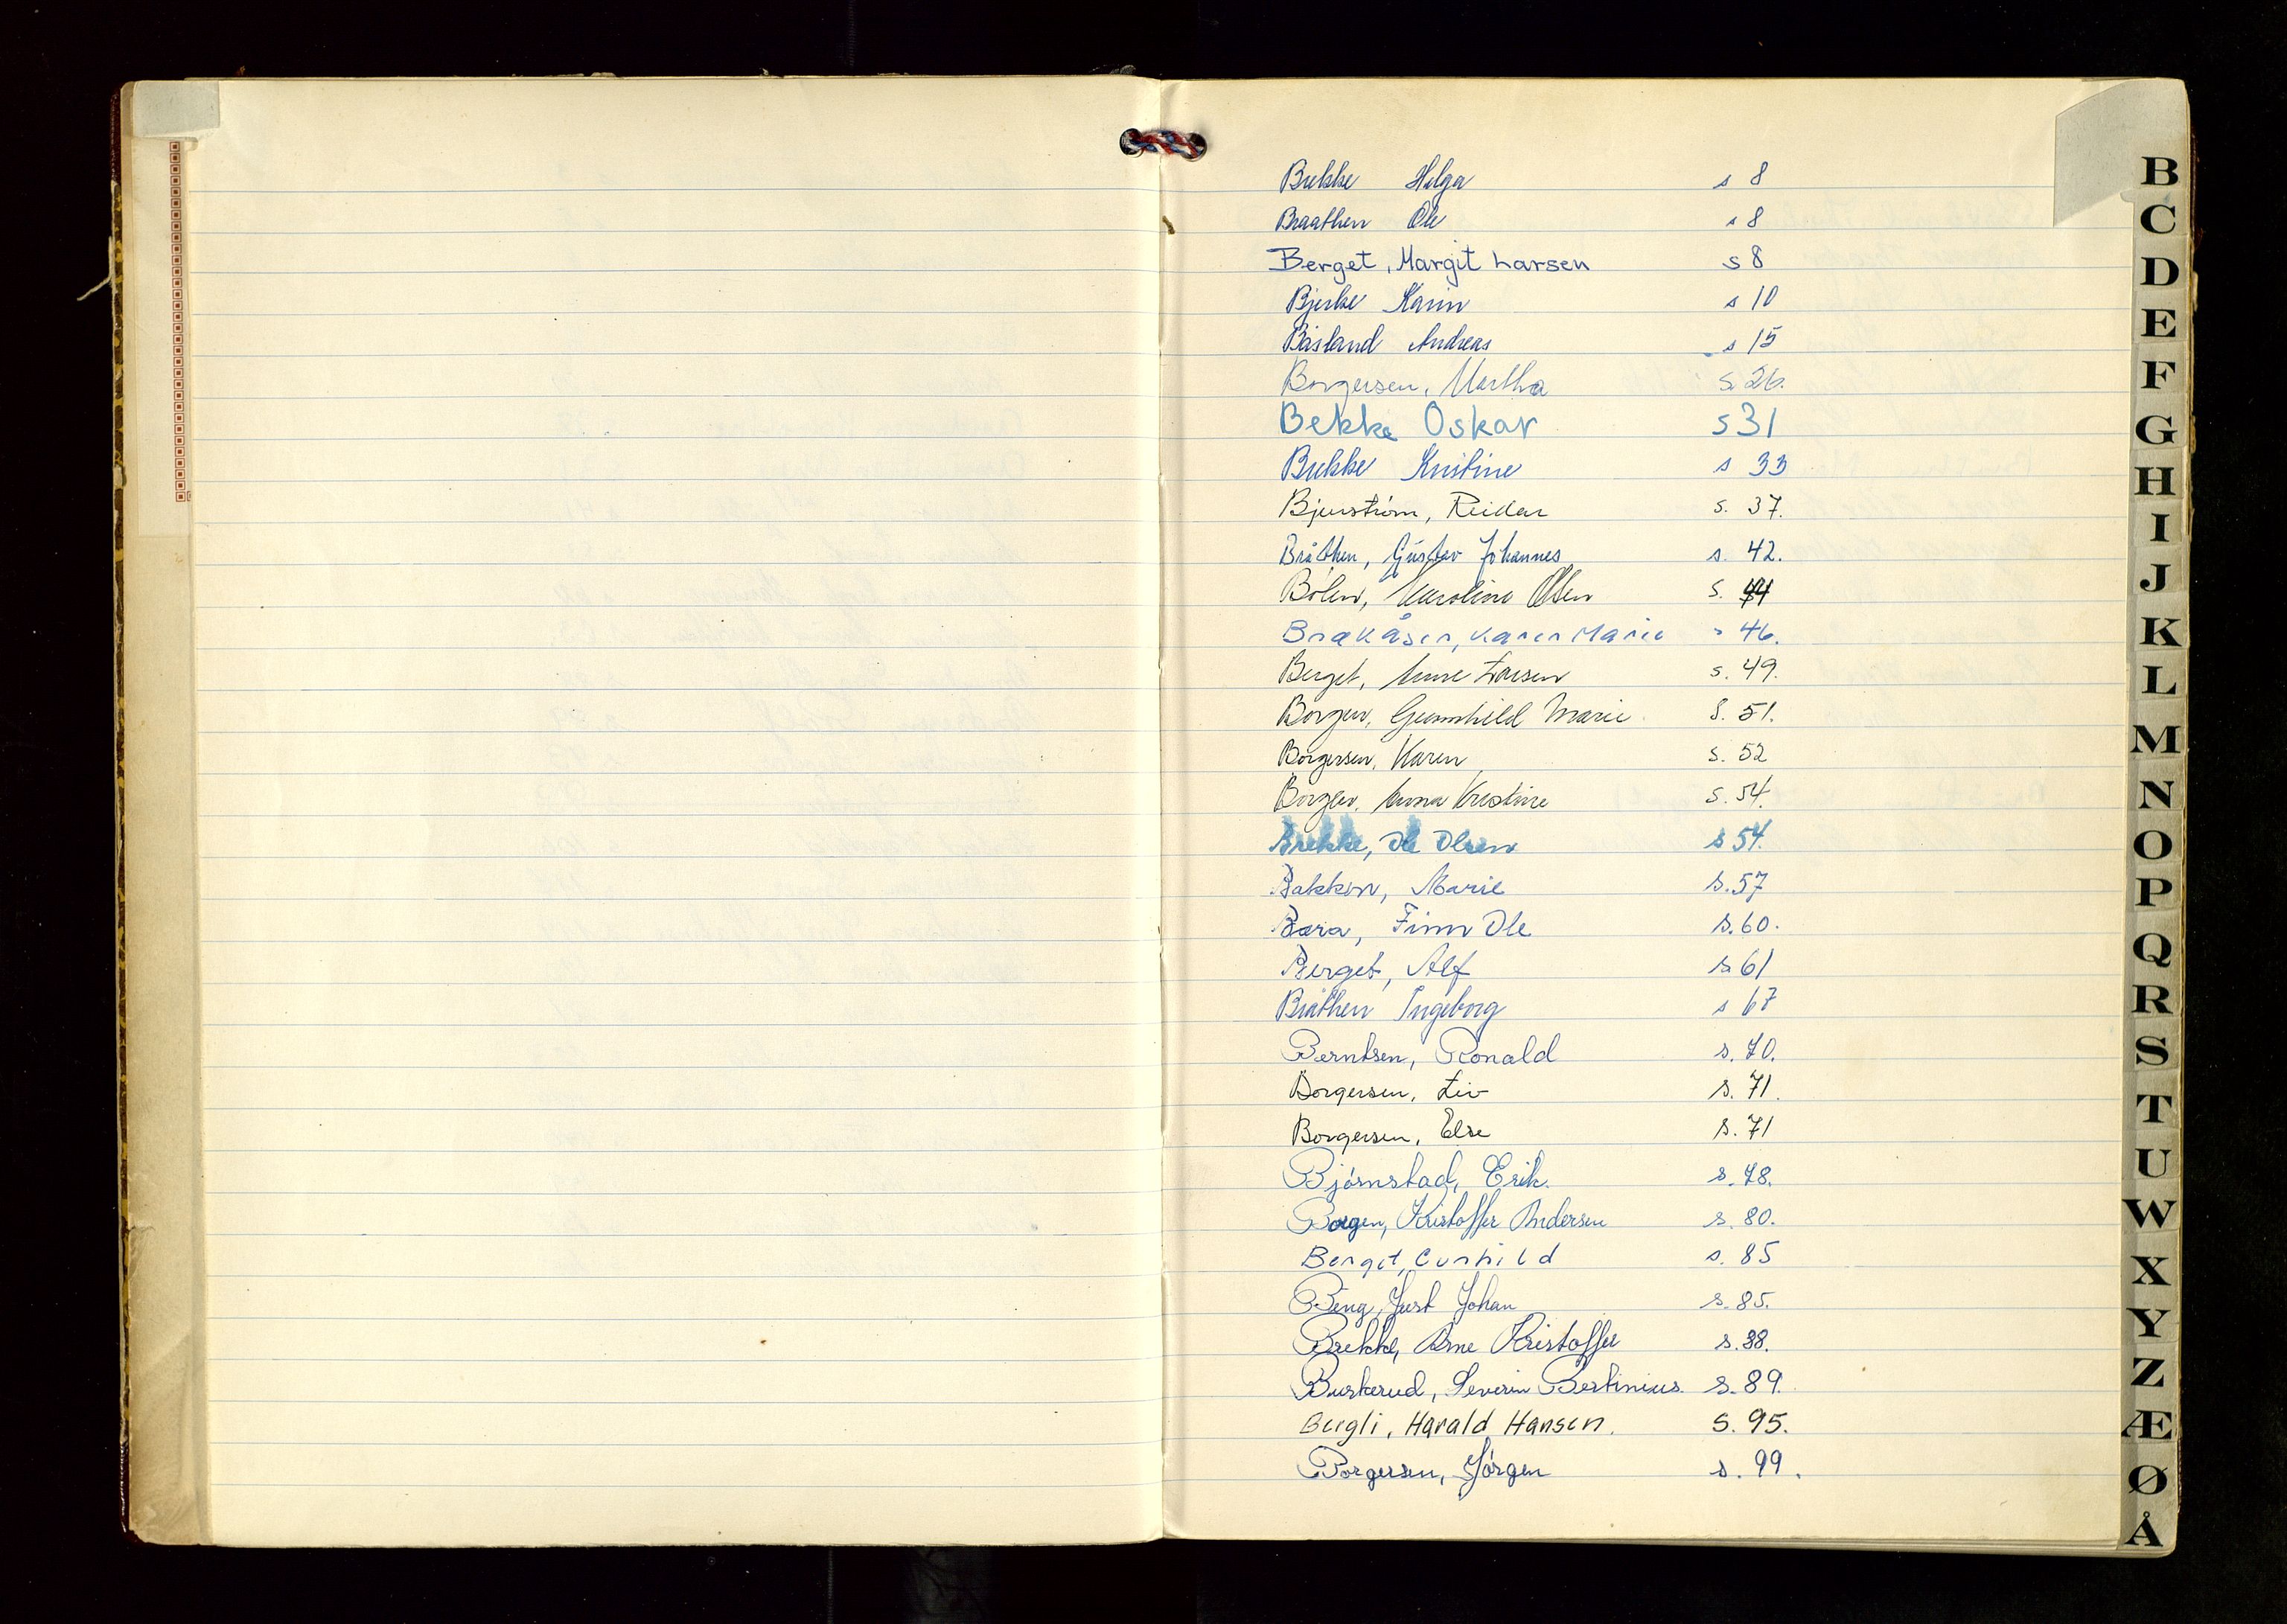 Brekke Helga s 8
Braathen Ole s 8
Berget, Margit Larsen s 8
Bjerke Karin s 10
Båsland Andreas s 15
Borgersen, Martha s. 26.
Bekke Oskar s 31
Brekke Kristine s 33
Bjurström, Reidar s. 37.
Bråthen, Gustav Johannes s. 42.
Bølen, Karoline Olsen s. 44
Brekåsen, Karen Marie s 46.
Berget, Anne Larsen s. 49.
Borgen, Gunnhild Marie s. 51.
Borgersen, Karen s. 52
Borgen, Anna Kristine s. 54.
Brekke, Ole Olsen s 54.
Bakken, Marie s. 57
Bæra, Finn Ole s. 60.
Berget, Alf s. 61
Bråthen Ingeborg s 67
Berntsen, Ronald s. 70.
Borgersen, Liv s. 71.
Borgersen, Else s. 71
Bjørnstad, Erik. s. 78.
Borgen, Kristoffer Andersen s. 80.
Berget, Gunhild s. 85
Berg, Just Johan s. 85.
Brekke, Arne Kristoffer s. 88.
Buskerud, Severin Bertinius. s. 89.
Bergli, Harald Hansen. s. 95.
Borgersen, Jørgen s. 99.
B
C
D
E
F
G
H
I
J
K
L
M
N
O
P
Q
R
S
T
U
W
X
Y
Z
Æ
Ø
Å